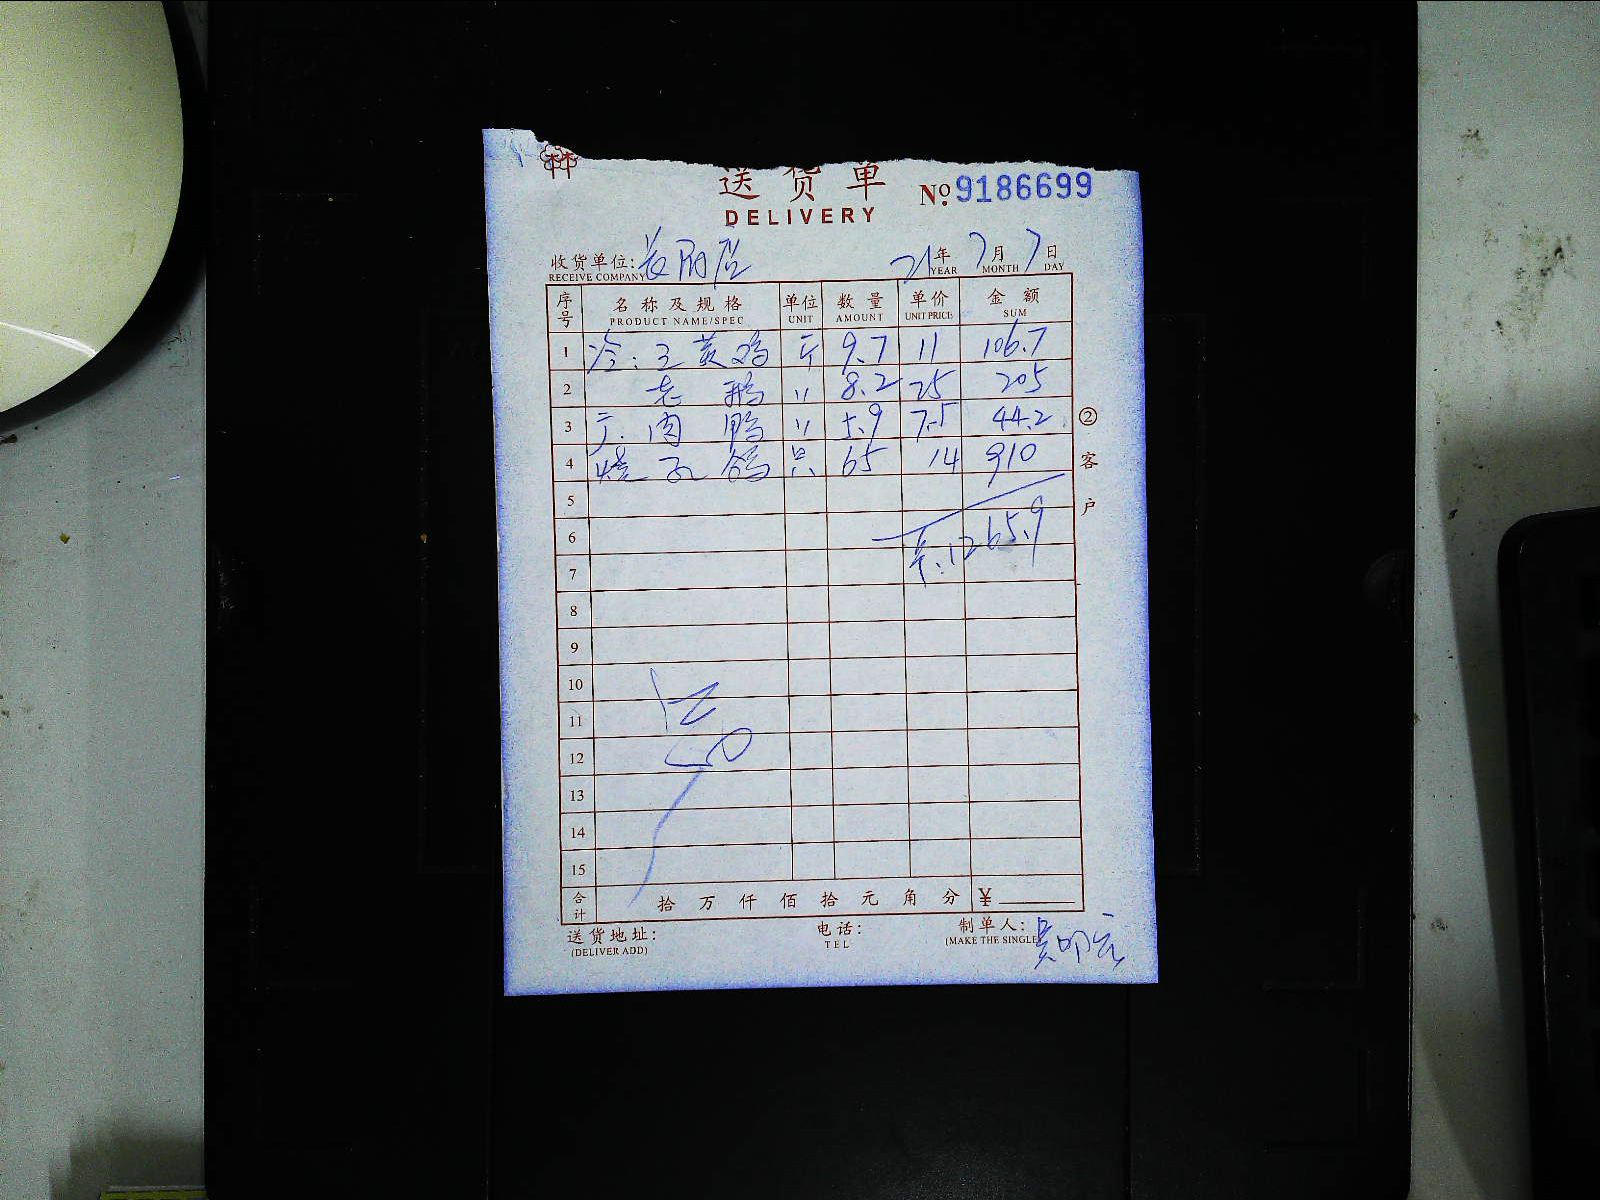 送货单
DELIVERY
No. 9186699
收货单位: 21年7月7日
RECEIVE COMPANY YEAR MONTH DAY
序号 名称及规格 单位 数量 单价 金额
PRODUCT NAME/SPEC UNIT AMOUNT UNIT PRICE SUM
1 冷:三黄鸡 斤 9.7 11 106.7
2 老鹅 〃 8.2 25 205
3 肉鸭 〃 5.9 7.5 44.2
4 烧乳鸽 只 65 14 910
5
6 1265.9
7
8
9
10
11
12
13
14
15
合计 拾万仟佰拾元角分 ¥
送货地址: 电话: 制单人:
(DELIVER ADD) TEL (MAKE THE SINGLE
②客户